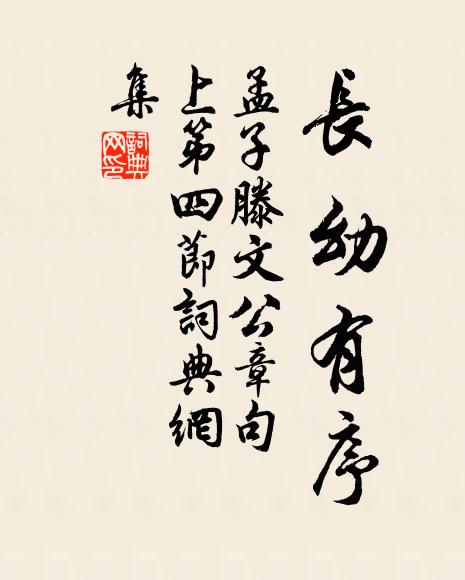 長幼有序
孟子滕文公章句
上第四節詞典網
集
詞典
网印